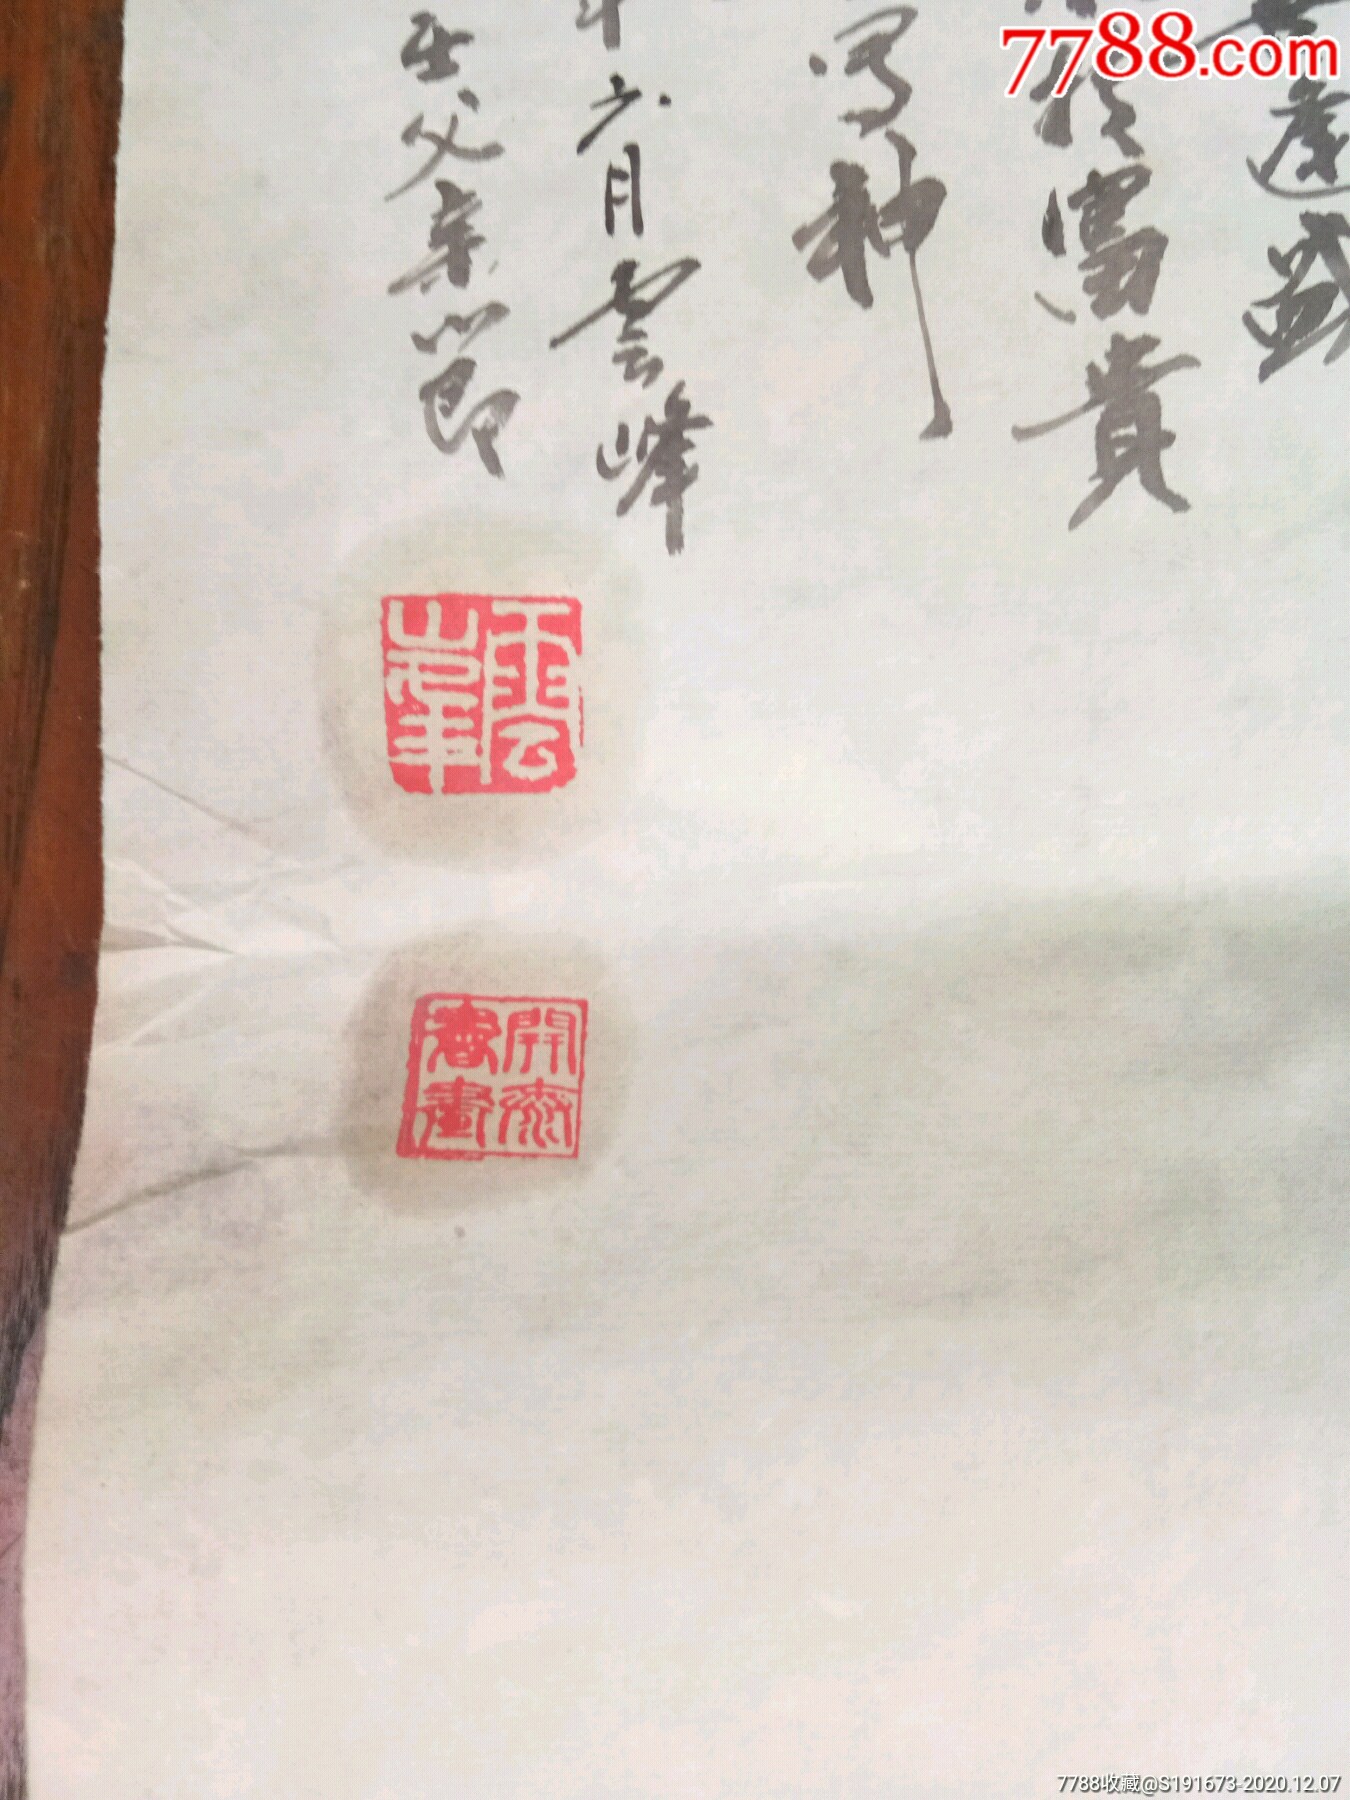 7788.com
逢盛
富貴
写神
六月雲峰
父亲节
雲峰
開泰書畫
7788收藏@S191673-2020.12.07